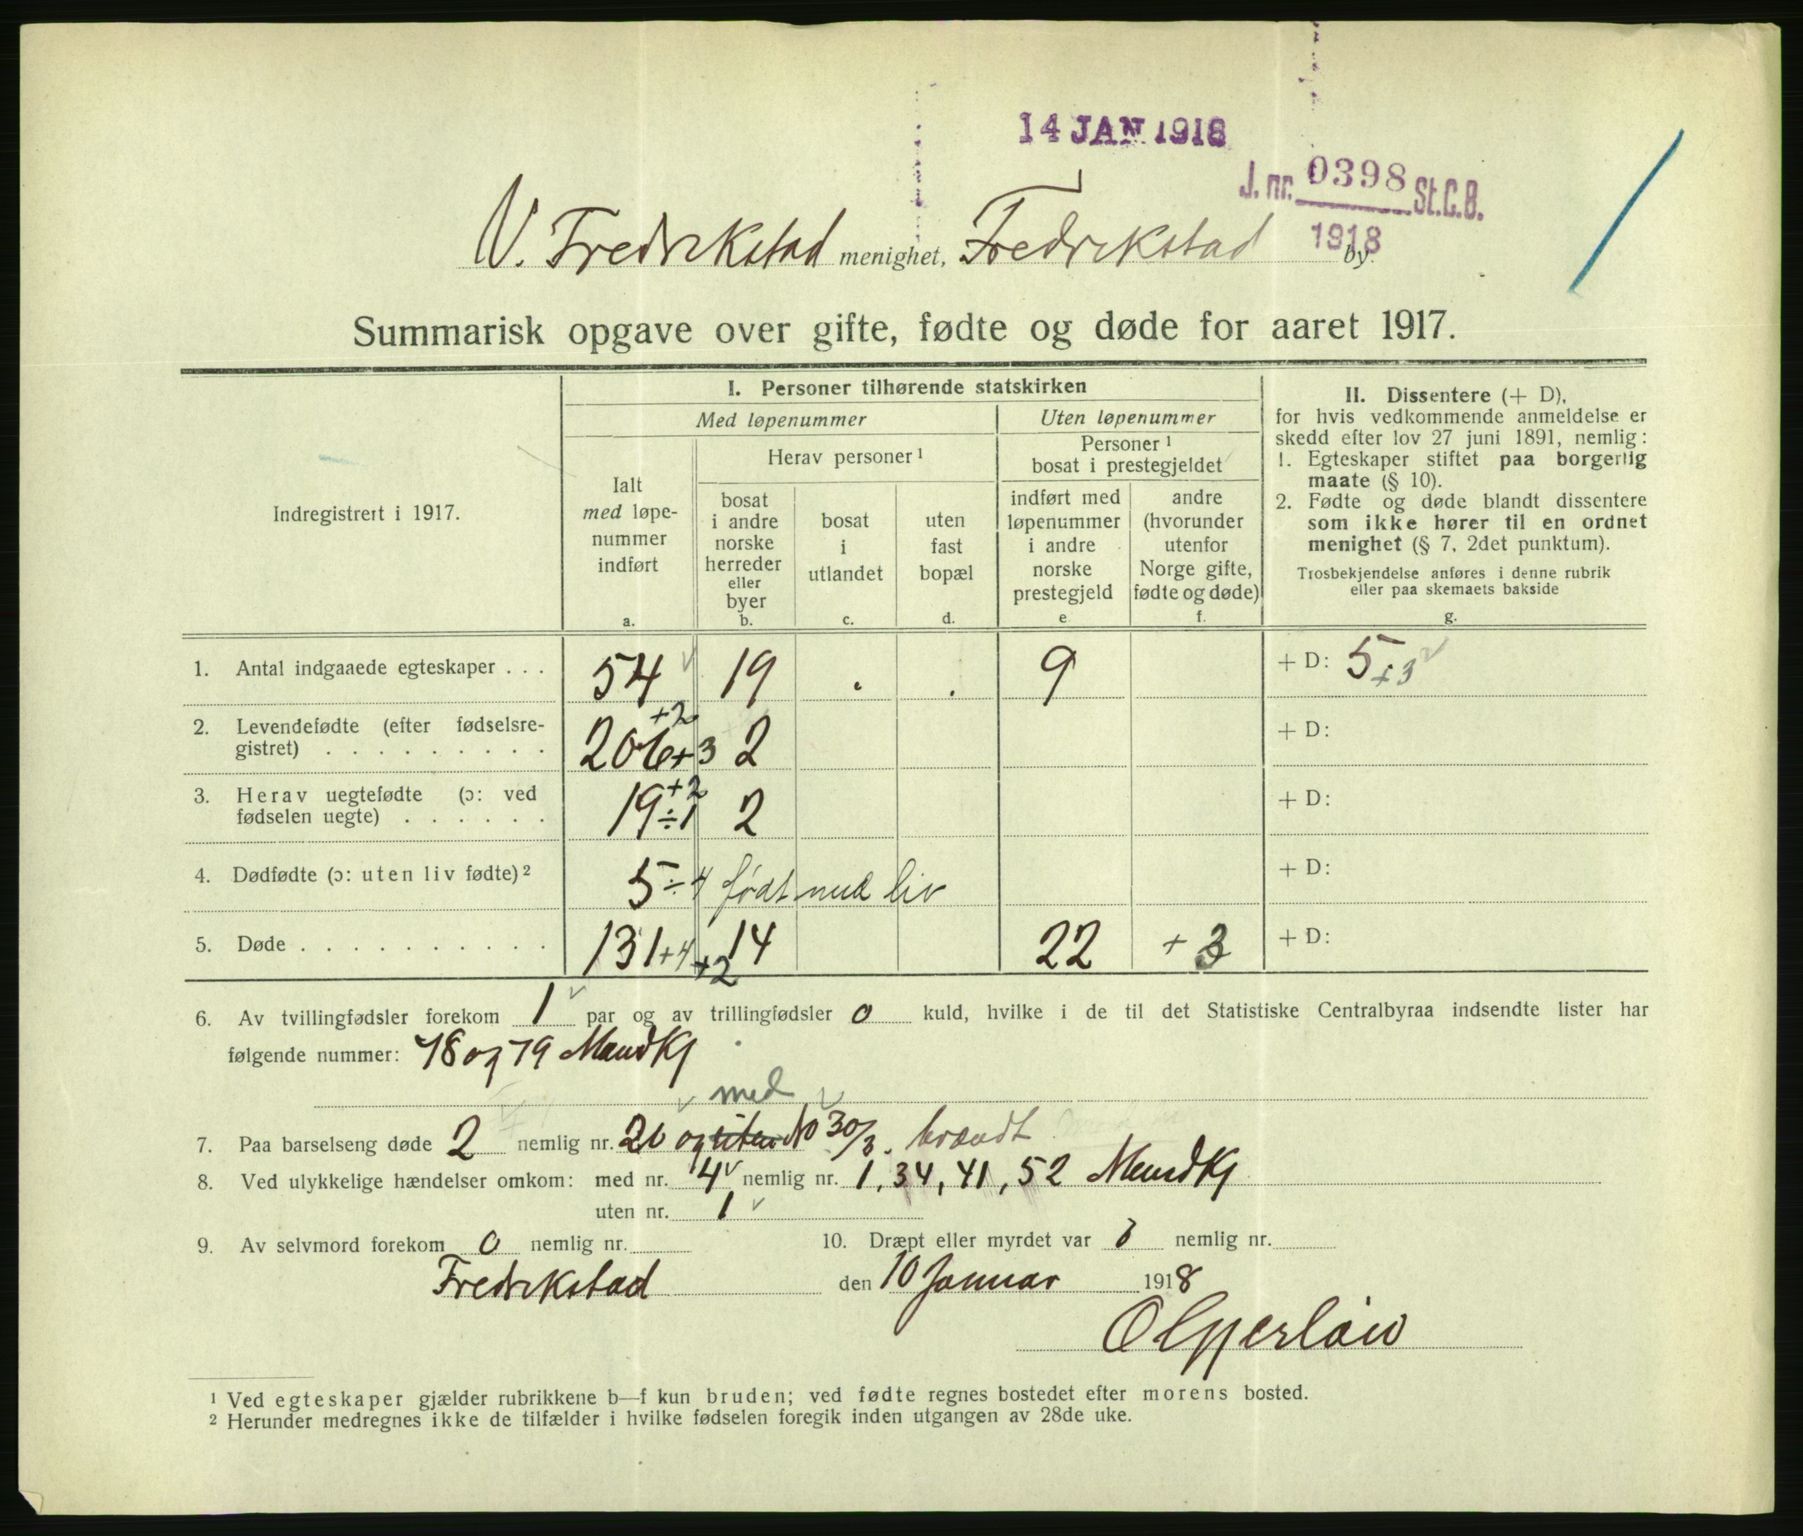 14 JAN 1918
J. nr. 0398 St.C.B.
1918
V. Fredrikstad menighet, Fredrikstad by.
Summarisk opgave over gifte, fødte og døde for aaret 1917.
Indregistrert i 1917.
I. Personer tilhørende statskirken
Med løpenummer
Uten løpenummer
Ialt
med løpe-
nummer
indført
a.
Herav personer ¹
bosat
i andre
norske
herreder
eller
byer
b.
bosat
i
utlandet
c.
uten
fast
bopæl
d.
Personer ¹
bosat i prestegjeldet
indført med
løpenummer
i andre
norske
prestegjeld
e
andre
(hvorunder
utenfor
Norge gifte,
fødte og døde)
f.
II. Dissentere (+ D),
for hvis vedkommende anmeldelse er
skedd efter lov 27 juni 1891, nemlig:
1. Egteskaper stiftet paa borgerlig
maate (§ 10).
2. Fødte og døde blandt dissentere
som ikke hører til en ordnet
menighet (§ 7, 2det punktum).
Trosbekjendelse anføres i denne rubrik
eller paa skemaets bakside
g.
1. Antal indgaaede egteskaper . . . 54 19 . . 9 + D: 5 + 3
2. Levendefødte (efter fødselsre-
gistret) . . . . . . . . . 206 +3 +2 2 + D:
3. Herav uegtefødte (ɔ: ved
fødselen uegte) . . . . . . 19 ÷1 +2 2 + D:
4. Dødfødte (ɔ: uten liv fødte) ² 5 ÷ 4 født med liv + D:
5. Døde . . . . . . . . . . 131 +4 +2 14 22 + 3 + D:
6. Av tvillingfødsler forekom 1 par og av trillingfødsler 0 kuld, hvilke i de til det Statistiske Centralbyraa indsendte lister har
følgende nummer: 78 og 79 Mandkj
med
7. Paa barselseng døde 2 nemlig nr. 20 og uten No 30/3. brændt
8. Ved ulykkelige hændelser omkom: med nr. 4 nemlig nr. 1, 34, 41, 52 Mandkj
uten nr. 1
9. Av selvmord forekom 0 nemlig nr.
10. Dræpt eller myrdet var nemlig nr.
Fredrikstad den 10 Januar 1918
¹ Ved egteskaper gjælder rubrikkene b—f kun bruden; ved fødte regnes bostedet efter morens bosted.
² Herunder medregnes ikke de tilfælder i hvilke fødselen foregik inden utgangen av 28de uke.